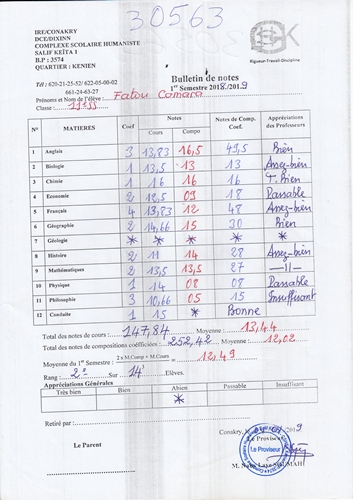 30563
IRE/CONAKRY
DCE/DIXINN
COMPLEXE SCOLAIRE HUMANISTE
SALIF KEÏTA I
B.P : 3574
QUARTIER : KENIEN
Rigueur-Travail-Discipline
Tél : 620-21-25-52/ 622-05-00-02
661-24-63-27
Bulletin de notes
1er Semestre 2018/2019
Prénoms et Nom de l'élève : Fatou Camara
Classe : 11ESS
N° MATIERES Coef Notes Notes de Comp. Coef. Appréciations des Professeurs
Cours Compo
1 Anglais 3 13,83 16,5 49,5 Bien
2 Biologie 1 13,5 13 13 Assez-bien
3 Chimie 1 16 16 16 T. Bien
4 Economie 2 12,5 09 18 Passable
5 Français 4 13,83 12 48 Assez-bien
6 Géographie 2 14,66 15 30 Bien
7 Géologie * * * * *
8 Histoire 2 11 14 28 Assez-bien
9 Mathématiques 2 13,5 13,5 27 —11—
10 Physique 1 14 08 08 Passable
11 Philosophie 3 10,66 05 15 Insuffisant
12 Conduite 1 15 * Bonne
Total des notes de cours : 147,84 Moyenne : 13,44
Total des notes de compositions coefficiées : 252,42 Moyenne : 12,02
Moyenne du 1er Semestre : 2 x M.Comp + M.Cours = 12,49
3
Rang : 2e Sur 14 Elèves.
Appréciations Générales
Très bien Bien Abien Passable Insuffisant
*
Retiré par :
Conakry,
Le Parent
Le Proviseur
Le Proviseur